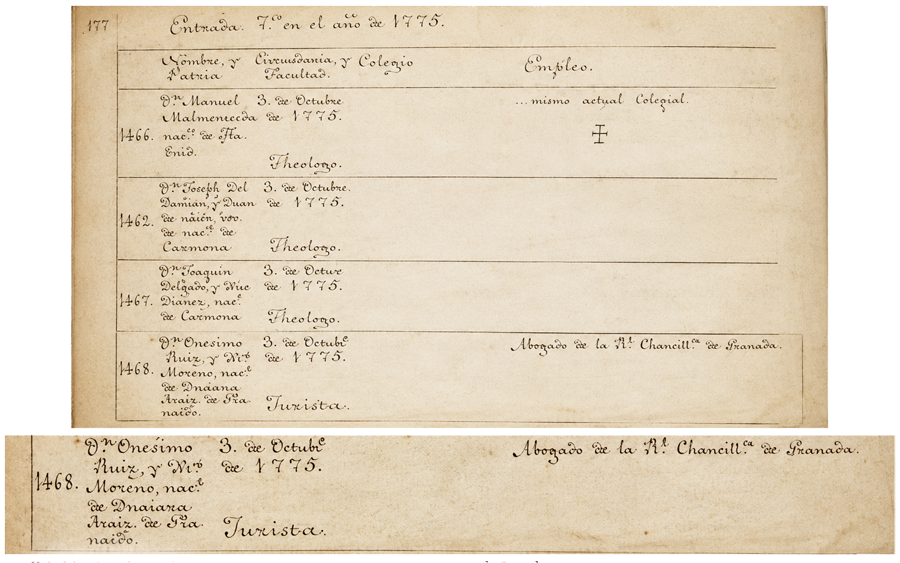 177
Entrada. 7.ᶜᵒ en el año de 1775.
Nombre, y Circunsdania, y Colegio
Patria Facultad. Empleo.
Dⁿ Manuel 3. de Octubre ...mismo actual Colegial.
Malmenceda de 1775.
1466. nac.º de
Enid. Theologo.
Dⁿ Joseph Del 3. de Octubre.
Damian, y Duan de 1775.
1462. de
de nac.ᵉ de
Carmona Theologo.
Dⁿ Joaquin 3. de Octure
Delgado, y Nue de 1775.
1467. Dianez, nac.ᵉ
de Carmona Theologo.
Dⁿ Onesimo 3. de Octubᵉ Abogado de la Rˡ Chancill.ᶜᵃ de Granada.
Ruiz, y de 1775.
1468. Moreno, nac.ᵉ
de Dnaiana
Araiz. de Gra
naido. Jurista.
Dⁿ Onesimo 3. de Octubᵉ Abogado de la Rˡ Chancill.ᶜᵃ de Granada.
Ruiz, y de 1775.
1468. Moreno, nac.ᵉ
de Dnaiara
Araiz. de Gra
naido. Jurista.